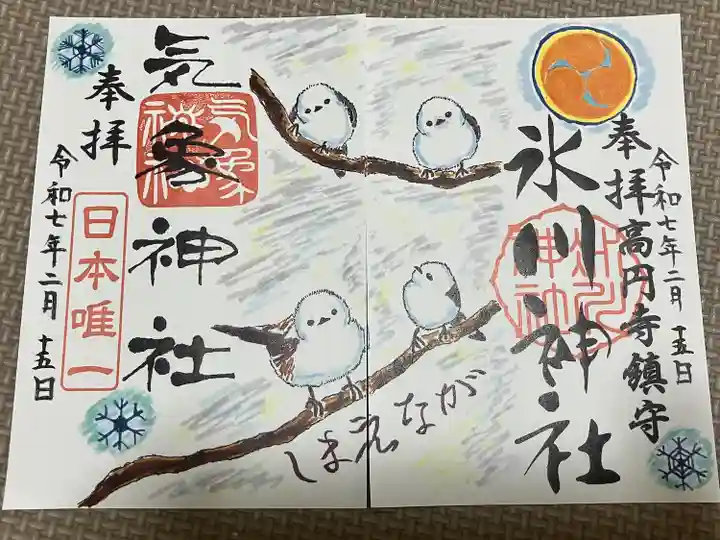 奉拝
高円寺鎮守
令和七年二月十五日
氷川神社
しまえなが
気象神社
奉拝
日本唯一
令和七年二月十五日